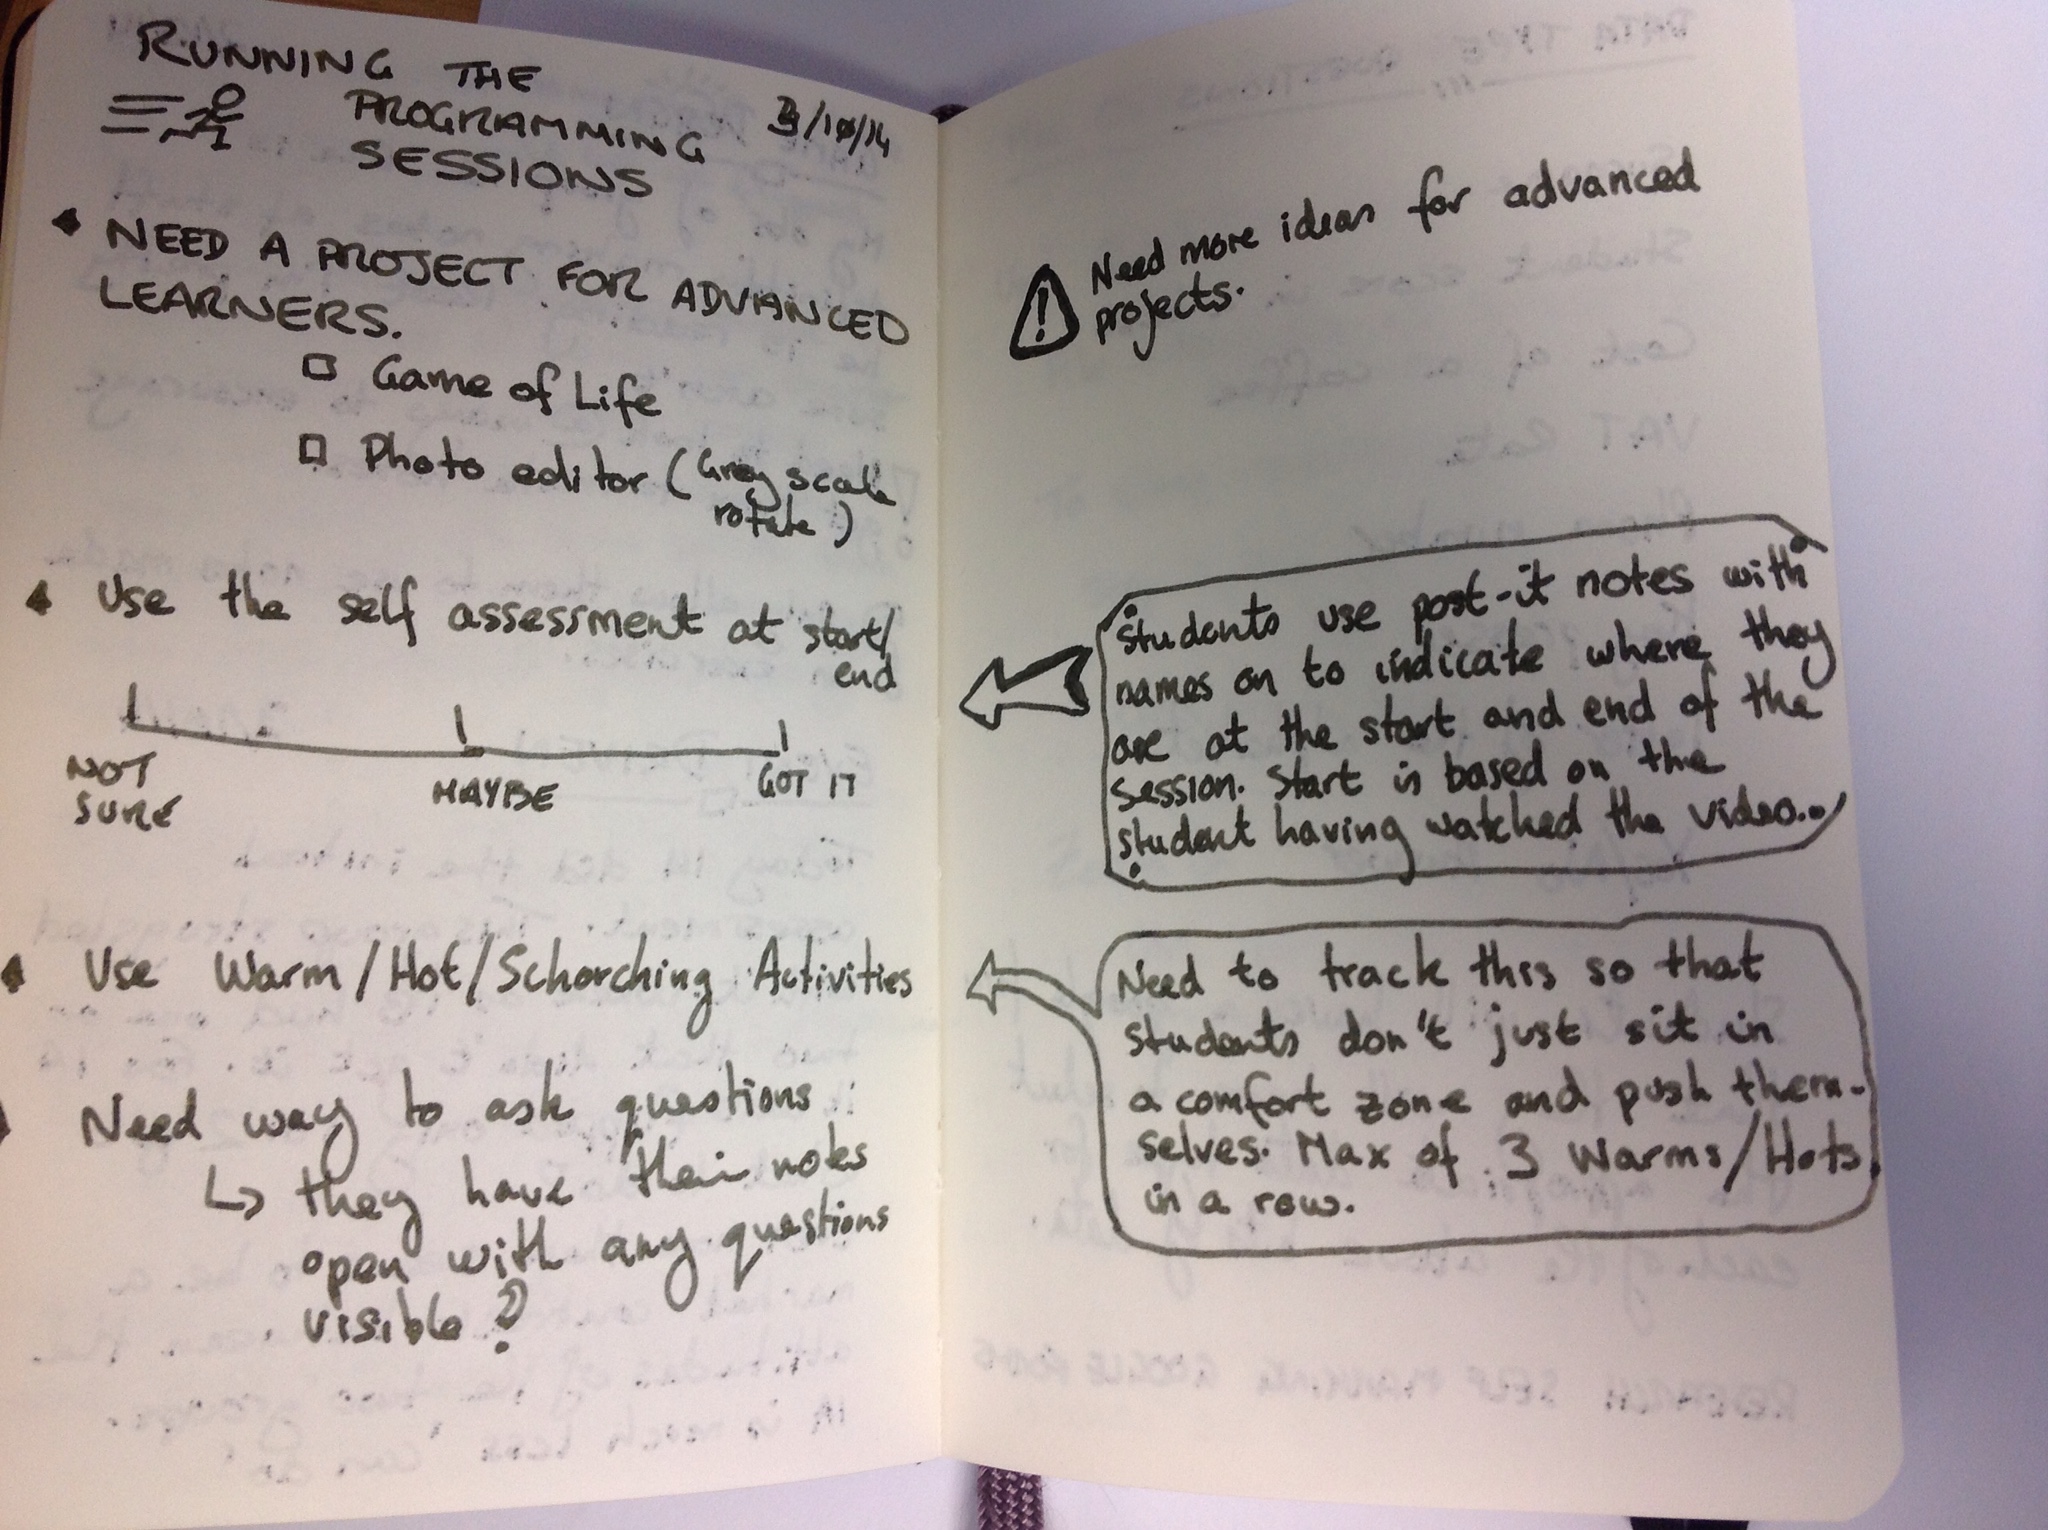 RUNNING THE
PROGRAMMING
SESSIONS
3/10/14
NEED A PROJECT FOR ADVANCED
LEARNERS.
Game of Life
Photo editor (Grey scale
rotate)
Use the self assessment at start/
end
NOT
SURE
MAYBE
GOT IT
Use Warm/Hot/Schorching Activities
Need way to ask questions
↳ they have their notes
open with any questions
visible?
Need more ideas for advanced
projects.
Students use post-it notes with
names on to indicate where they
are at the start and end of the
session. Start is based on the
student having watched the video..
Need to track this so that
students don't just sit in
a comfort zone and push them-
selves. Max of 3 Warms/Hots
in a row.